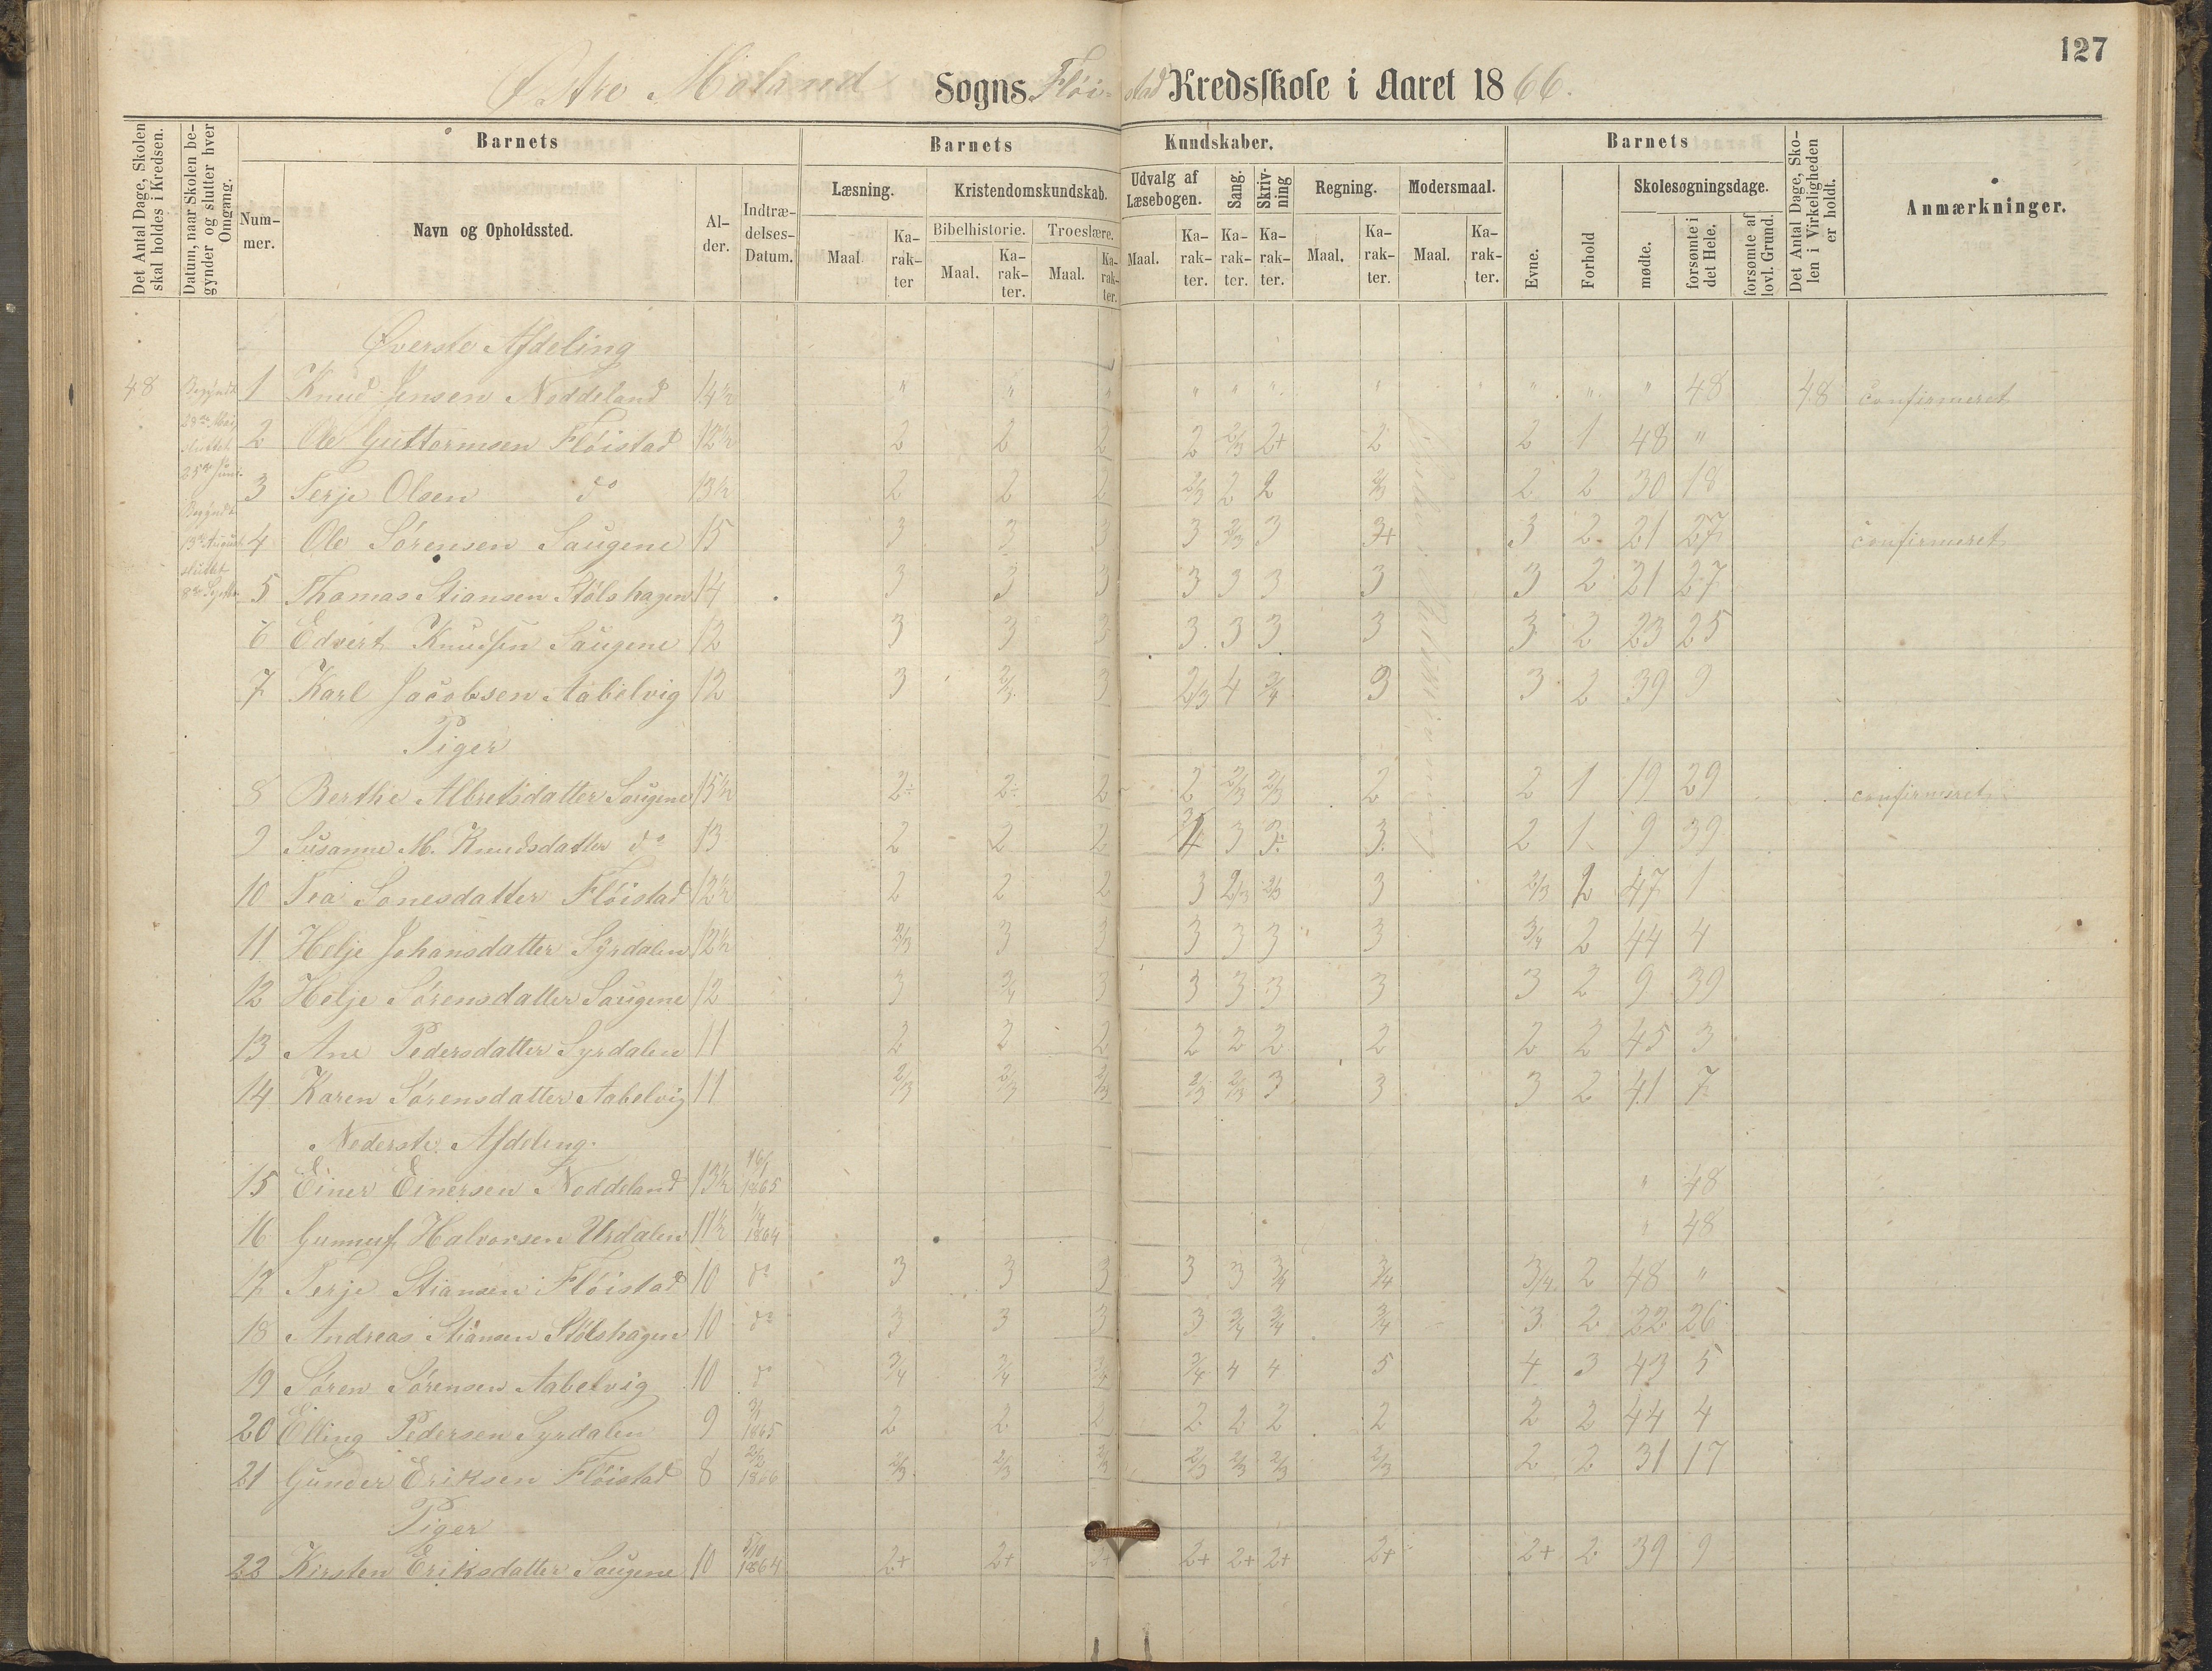 127
Østre Moland Sogns Flöistad Kredsskole i Aaret 1866.
Det Antal Dage, Skolen skal holdes i Kredsen.
Datum, naar Skolen begynder og slutter hver Omgang.
Barnets
Barnets Kundskaber.
Barnets
Det Antal Dage, Skolen i Virkeligheden er holdt.
Anmærkninger.
Nummer.
Navn og Opholdssted.
Alder.
Indtrædelses-Datum.
Læsning.
Kristendomskundskab.
Udvalg af Læsebogen.
Sang.
Skrivning
Regning.
Modersmaal.
Evne.
Forhold
Skolesøgningsdage.
Bibelhistorie.
Troeslære.
Maal
Karakter
Maal.
Karakter.
Maal.
Karakter.
Maal.
Karakter.
Karakter.
Karakter.
Maal.
Karakter.
Maal.
Karakter.
mødte.
forsømte i det Hele.
forsømte af lovl. Grund.
Øverste Afdeling
48 Begyndt 1 Knud Jensen Noddeland 14½ " " " " " " " " " " 48 48 confirmeret
28de Mai sluttet 2 Ole Guttormsen Flöistad 12½ 2 2 2 2 2/3 2+ 2 2 1 48 "
25de Juni 3 Terje Olsen do 13½ 2 2 2 2/3 2 2 2/3 2 2 30 18
Begyndt 13de August 4 Ole Sörensen Saugene 15 3 3 3 3 2/3 3 3+ 3 2 21 27 confirmeret
sluttet 5 Thomas Stiansen Stölshagen 14 3 3 3 3 3 3 3 3 2 21 27
6 Edvert Knudsen Saugene 12 3 3 3 3 3 3 3 3 2 23 25
7 Karl Jacobsen Aabelvig 12 3 2/3 3 2/3 4 3/4 3 3 2 39 9
Piger
8 Berthe Albretsdatter Saugene 15½ 2÷ 2÷ 2 2 2/3 2/3 2 2 1 19 29 confirmeret
9 Susanne M. Knudsdatter do 13 2 2 2 3 3÷ 3 2 1 9 39
10 Tea Sonesdatter Flöistad 12½ 2 2 2 3 2/3 2/3 3 2/3 2 47 1
11 Helje Johansdatter Syrdalen 12½ 2/3 3 3 3 3 3 3 3/4 2 44 4
12 Helje Sörensdatter Saugene 12 3 3/4 3 3 3 3 3 3 2 9 39
13 Ane Pedersdatter Syrdalen 11 2 2 2 2 2 2 2 2 2 45 3
14 Karen Sörensdatter Aabelvig 11 2/3 2/3 2/3 2/3 2/3 3 3 3 2 41 7
Nederste Afdeling.
15 Einer Einersen Noddeland 13½ 1865 " 48
16 Gunnuf Halvorsen Urdalen 11½ 1864 " 48
17 Terje Stiansen Flöistad 10 do 3 3 3 3 3 3/4 3/4 3/4 2 48 "
18 Andreas Stiansen Stölshagen 10 do 3 3 3 3 3/4 3/4 3/4 3 2 22 26
19 Sören Sörensen Aabelvig 10 do 3/4 3/4 3/4 3/4 4 4 5 4 3 43 5
20 Elling Pedersen Syrdalen 9 1865 2 2 2 2 2 2 2 2 2 44 4
21 Gunder Eriksen Flöistad 8 1866 2/3 2/3 2/3 2/3 2/3 2/3 2/3 2 2 31 17
Piger
22 Kirsten Eriksdatter Saugene 10 5/10 1864 2+ 2+ 2+ 2+ 2+ 2+ 2+ 2+ 2 39 9